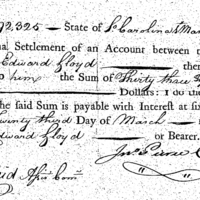 92,325 — State of So Carolina
nal Settlement of an Account between th
Edward Lloyd — then
to him the Sum of Thirty three
Dollars: I do
the said Sum is payable with Interest at six
wenty third Day of March —
Edward Lloyd — or Bearer.
Jno. Pierce